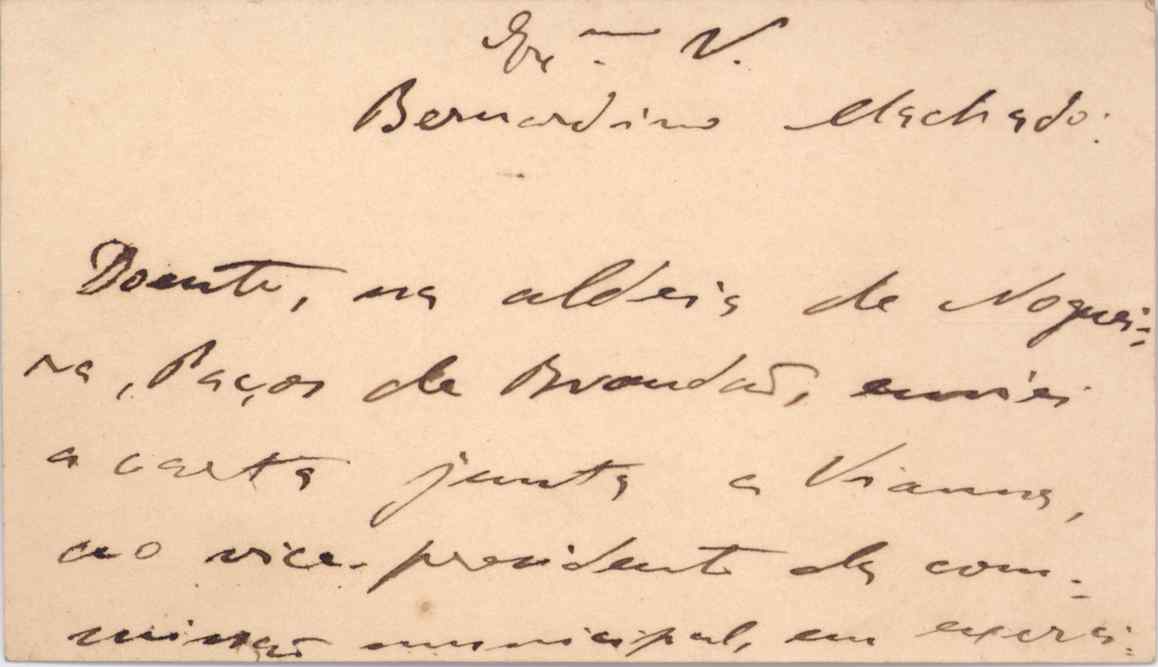 Exmo V.
Bernardino Machado.
Doente, na aldeia de Noguei-
ra, Paços de Brandão, enviei
a carta junta a Vianna,
ao vice-presidente da com-
missão municipal, em exerci-